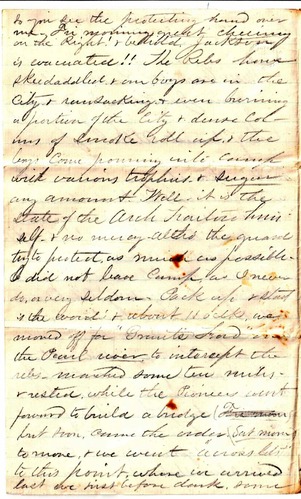 so you see the protecting hand over
me. In morning great cheering
on the Right! & behold, Jackson
is evacuated!! The Rebs have
skedaddled, & our boys are in the
City, & ransacking, & even burning
a portion of the City & dense Col
umns of smoke roll up, & the
boys Come pouring into Camp
with various trophies & sugar
any amount. Well it is the
State of the Arch Traitor him
self, & no mercy altho the guards
try to protect, as much as possible
I did not leave Camp, as I never
do, or very seldom. Pack up & start
is the word! & about 11 o'clk, we
moved off for "Grants ford" on
the Pearl river to intercept the
rebs. marched some ten miles
& rested, while the Pioneers went
forward to build a bridge
but soon, came the order,
to move, & we went across lots
to this point, where we arrived
last eve just before dark, some